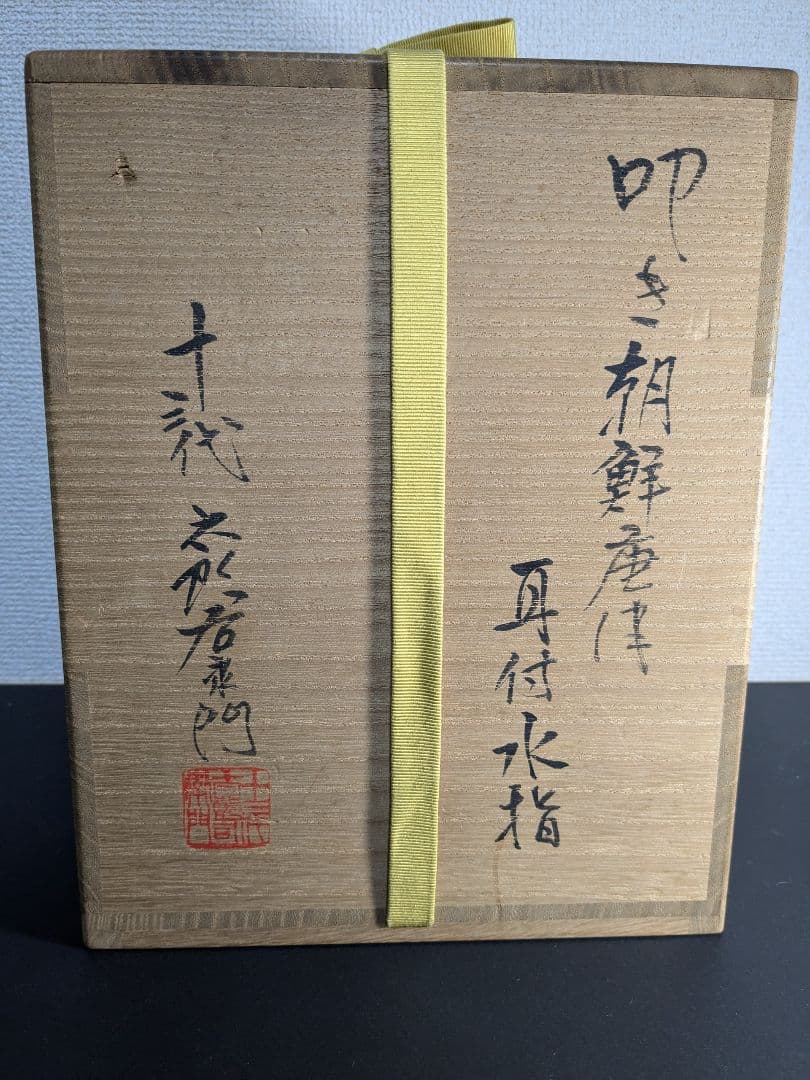 叩き朝鮮唐津
耳付水指
十三代 太郎右衛門